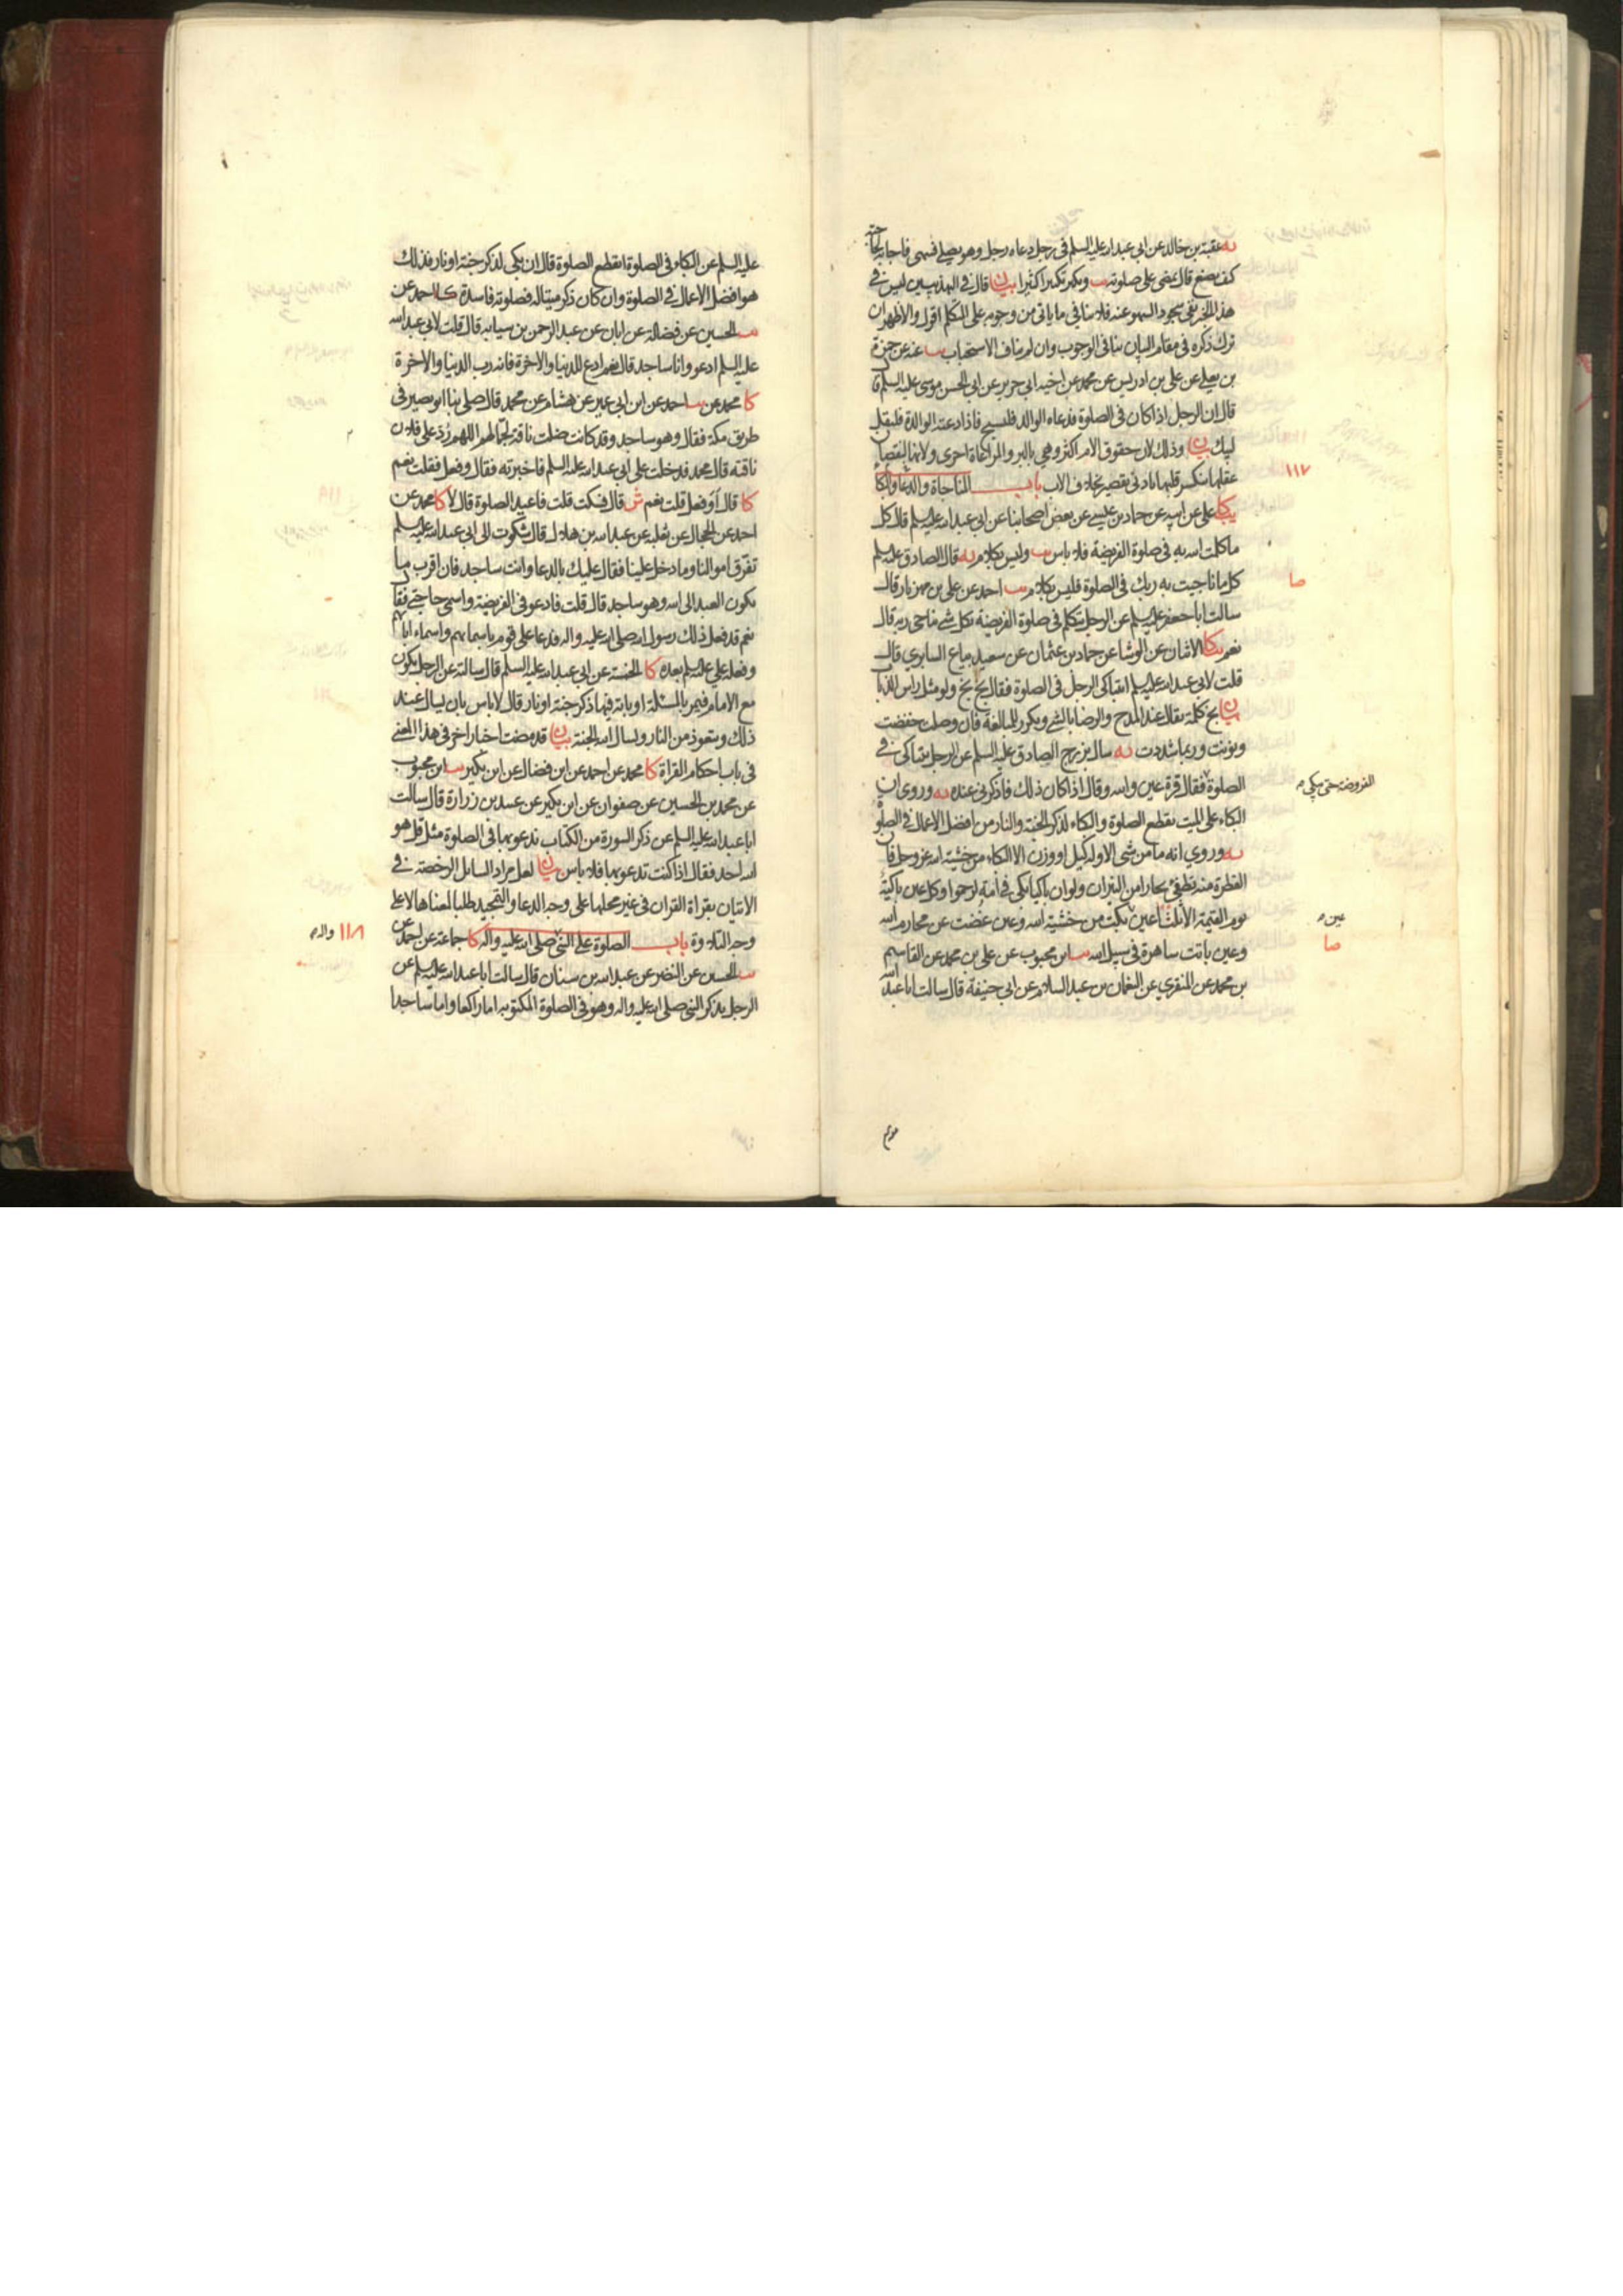 يه عقبة بن خالد عن ابي عبد الله عليه السلم في رجل دعاه رجل وهو يصلي فسهى فاجابه لحاجته
كيف يصنع قال يمضي على صلوته يب ويكبر تكبيرا كثيرا بيان قال في التهذيبين ليس في
هذا الخبر نفي سجود السهو عنه فلا ينافي ما ياتي من وجوبه على المتكلم اقول والاظهر ان
ترك ذكره في مقام البيان ينافي الوجوب وان لم يناف الاستحباب يب عنه عن حمزة
بن يعلى عن علي بن ادريس عن محمد عن اخيه ابي جرير عن ابي الحسن موسى عليه السلم قال
قال ان الرجل اذا كان في الصلوة فدعاه الوالد فليسبح فاذا دعته الوالدة فليقل
لبيك بيان وذلك لان حقوق الام اكثر وهي بالبر والمراعاة احرى ولانها لنقصان
عقلها ينكسر قلبها بادنى تقصير بخلاف الاب باب المناجاة والدعا والبكا
١١٧
يب كا علي عن ابيه عن حماد بن عيسى عن بعض اصحابنا عن ابي عبد الله عليه السلم قال كل
ما كلمت الله به في صلوة الفريضة فلا باس يب وليس بكلام يه قال الصادق عليه السلم
كل ما ناجيت به ربك في الصلوة فليس بكلام يب احمد عن علي بن مهزيار قال
صا
سالت ابا جعفر عليه السلم عن الرجل يتكلم في صلوة الفريضة بكل شي يناجي ربه قال
نعم يب كا الاثنان عن الوشا عن حماد بن عثمان عن سعيد بياع السابري قال
قلت لابي عبد الله عليه السلم ايتباكى الرجل في الصلوة فقال بخ بخ ولو مثل راس الذباب
بيان بخ كلمة يقال عند المدح والرضا بالشي ويكرر للمبالغة فان وصلت خفضت
ونونت وربما شددت يه سال بزرج الصادق عليه السلم عن الرجل يتباكى في
الصلوة فقال قرة عين والله وقال اذا كان ذلك فاذكرني عنده يه وروي ان
المفروضة حتى يبكي
البكاء على الميت يقطع الصلوة والبكاء لذكر الجنة والنار من افضل الاعمال في الصلوة
يه وروي انه ما من شي الا وله كيل او وزن الا البكاء من خشية الله عز وجل فان
القطرة منه تطفي بحارا من النيران ولو ان باكيا بكى في امة لرحموا وكل عين باكية
يوم القيمة الا ثلثة اعين بكت من خشية الله وعين غضت عن محارم الله
عين
وعين باتت ساهرة في سبيل الله يب ابن محبوب عن علي بن محمد عن القاسم
صا
بن محمد عن المنقري عن النعمان بن عبد السلام عن ابي حنيفة قال سالت ابا عبد الله
عليه السلم عن البكاء في الصلوة ايقطع الصلوة قال ان بكى لذكر جنة او نار فذلك
هو افضل الاعمال في الصلوة وان كان ذكر ميتا له فصلوته فاسدة كا احمد عن
يب الحسين عن فضالة عن ابان عن عبد الرحمن بن سيابه قال قلت لابي عبد الله
عليه السلم ادعو وانا ساجد قال نعم ادع للدنيا والاخرة فانه رب الدنيا والاخرة
كا محمد عن يب احمد عن ابن ابي عمير عن هشام عن محمد قال صلى بنا ابو بصير في
طريق مكة فقال وهو ساجد وقد كانت ضلت ناقة لجمالهم اللهم رد على فلان
ناقته قال محمد فدخلت على ابي عبد الله عليه السلم فاخبرته فقال وفعل فقلت نعم
كا قال أو فعل قلت نعم ش قال فسكت قلت فاعيد الصلوة قال لا كا محمد عن
احمد عن الحجال عن ثعلبة عن عبد الله بن هلال قال شكوت الى ابي عبد الله عليه السلم
تفرق اموالنا وما دخل علينا فقال عليك بالدعا وانت ساجد فان اقرب ما
يكون العبد الى الله وهو ساجد قال قلت فادعو في الفريضة واسمي حاجتي فقال
نعم قد فعل ذلك رسول الله صلى الله عليه واله فدعا على قوم باسمايهم واسماء ابائهم
وفعله علي عليه السلم بعده كا الخمسة عن ابي عبد الله عليه السلم قال سالته عن الرجل يكون
مع الامام فيمر بالمسئلة او باية فيها ذكر جنة او نار قال لا باس بان يسال عند
ذلك ويتعوذ من النار ويسال الله الجنة بيان قد مضت اخبار اخر في هذا المعنى
في باب احكام القراة كا محمد عن احمد عن ابن فضال عن ابن بكير يب ابن محبوب
عن محمد بن الحسين عن صفوان عن ابن بكير عن عبيد بن زرارة قال سالت
ابا عبد الله عليه السلم عن ذكر السورة من الكتاب ندعو بها في الصلوة مثل قل هو
الله احد فقال اذا كنت تدعو بها فلا باس بيان لعل مراد السائل الرخصة في
الاتيان بقراة القران في غير محلها على وجه الدعا والتمجيد طلبا لمعناها لا على
وجه التلاوة باب الصلوة على النبي صلى الله عليه واله كا جماعة عن احمد عن
١١٨ واله
يب الحسين عن النضر عن عبد الله بن سنان قال سالت ابا عبد الله عليه السلم عن
الرجل يذكر النبي صلى الله عليه واله وهو في الصلوة المكتوبة اما راكعا واما ساجدا